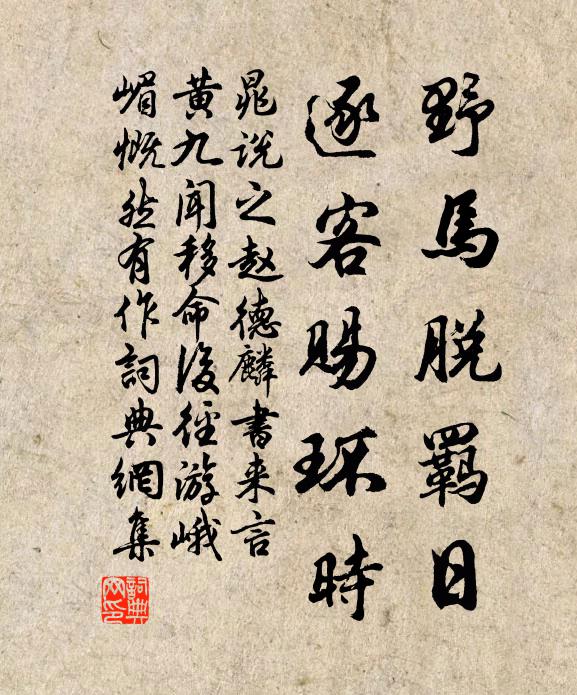 野馬脱羈日
逐客賜环時
晁説之赵德麟書来言
黄九聞移命後徑游峨
嵋慨然有作詞典網集
詞典